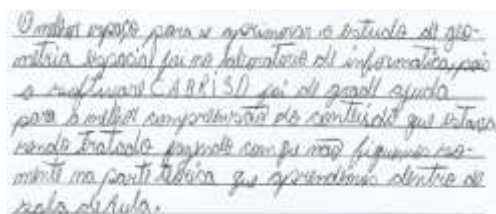 O melhor espaço para se aprimorar o estudo de geo-
metria espacial foi no laboratorio de informatica, pois
o software CARRISA foi de grade ajuda
para a melhor compreensão do conteúdo que estava
sendo tratado fazendo com que não fiquemos so-
mente na parte teórica que aprendemos dentro de
sala de aula.